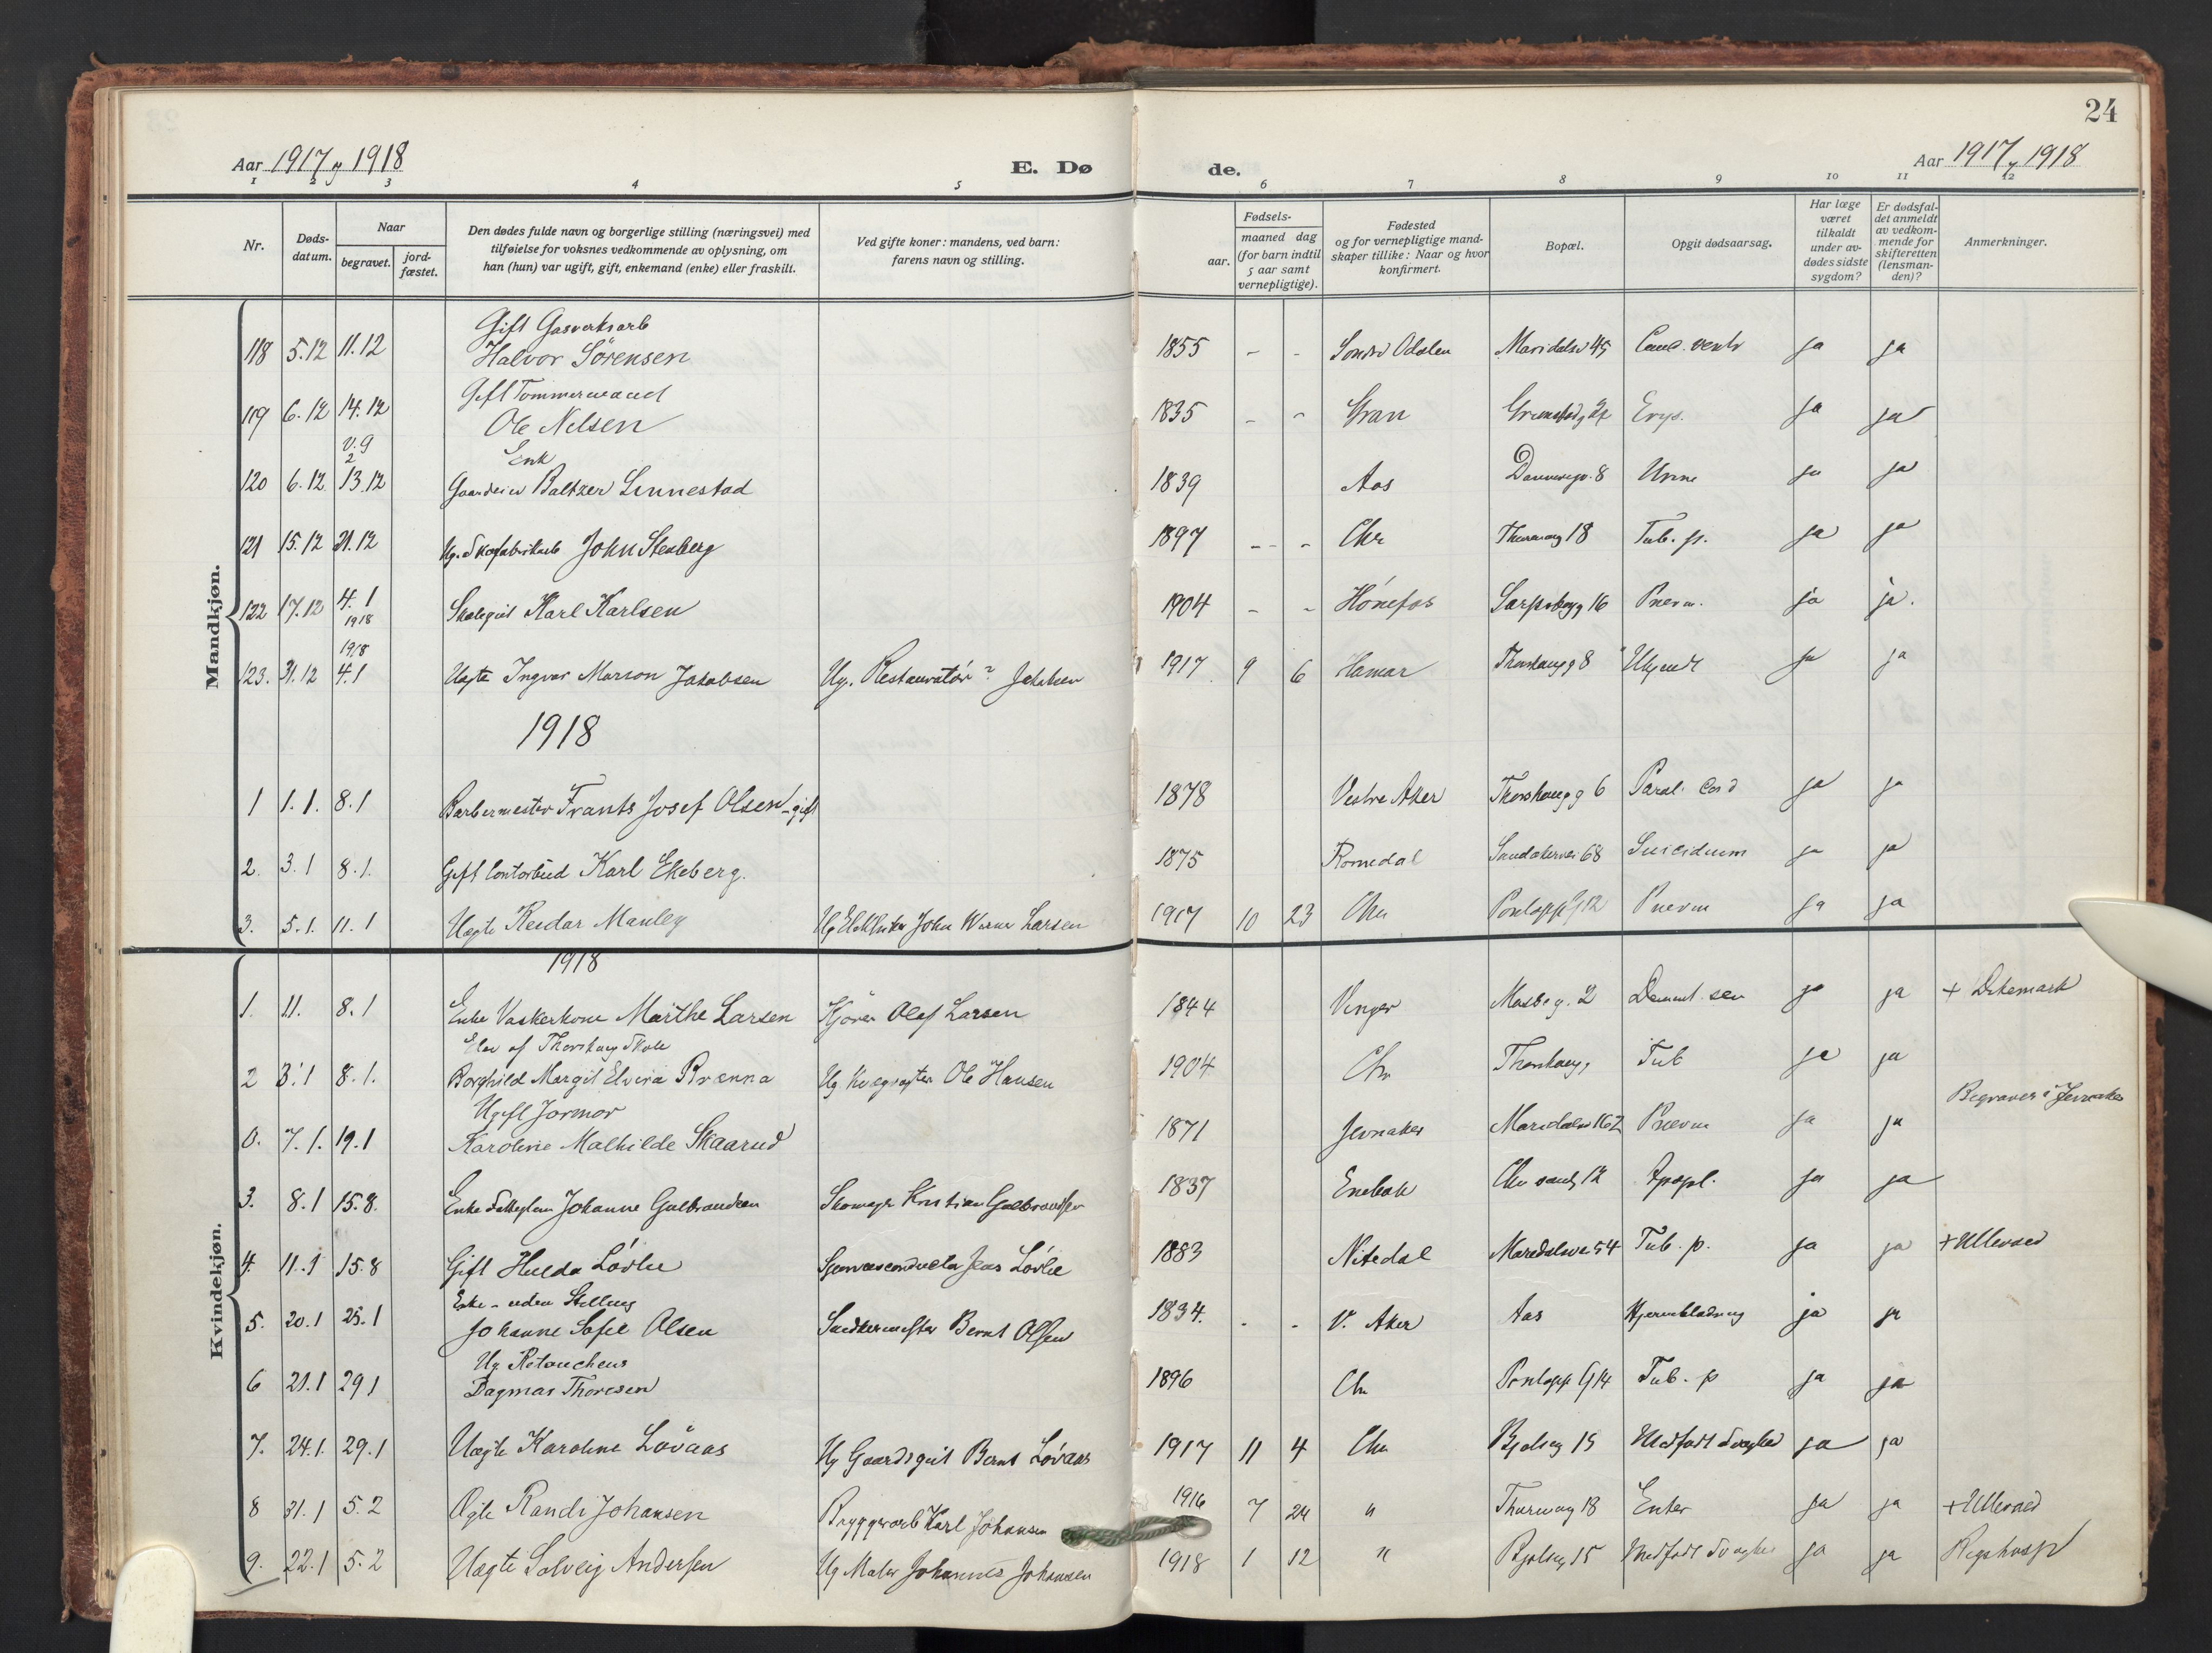 24
Aar 1917 og 1918
E. Døde.
Aar 1917 og 1918
1 2 3 4 5 6 7 8 9 10 11 12
Nr.
Døds-
datum.
Naar
begravet.
jord-
fæstet.
Den dødes fulde navn og borgerlige stilling (næringsvei) med
tilføielse for voksnes vedkommende av oplysning, om
han (hun) var ugift, gift, enkemand (enke) eller fraskilt.
Ved gifte koner: mandens, ved barn:
farens navn og stilling.
Fødsels-
aar.
maaned dag
(for barn indtil
5 aar samt
vernepligtige).
Fødested
og for vernepligtige mand-
skaper tillike: Naar og hvor
konfirmert.
Bopæl.
Opgit dødsaarsag.
Har læge
været
tilkaldt
under av-
dødes sidste
sygdom?
Er dødsfal-
det anmeldt
av vedkom-
mende for
skifteretten
(lensman-
den)?
Anmerkninger.
Mandkjøn.
Gift Gasverksarb
118 5.12 11.12 Halvor Sörensen 1855 - - Søndre Odalen Maridalsv 45 Canc. ventr ja ja
Gift Tømmermand
119 6.12 14.12 Ole Nilsen 1835 - - Gran Grimstadg Erys. ja ja
v.g
2
Enk
120 6.12 13.12 Gaardeier Baltzer Linnestad 1839 Aas 8 ja ja
121 15.12 21.12 Ug. Skofabrikarb John Stenberg 1897 - - - Chr 18 Tub. p. ja ja
122 17.12 4.1 1918 Skolegut Karl Karlsen 1904 - - Hönefos Sarpsborgg 16 Pnevm. ja ja.
1918
123. 31.12 4.1 Uegte Ingvar Marson Jakobsen Ug. Restauratör ? Jakobsen 1917 9 6 Hamar Thorshaugg 8 Ukjendt ja ja
1918
1 1.1. 8.1 Barbermester Frants Josef Olsen - gift 1878 Vestre Aker Thorshaugg 6 Paral. Cord ja ja
2. 3.1 8.1. Gift Contorbud Karl Ekeberg. 1875 Romedal Sandakervei 68 Suicidium ja ja
3. 5.1. 11.1 Uegte Reidar Manley Ug Elektriker John Werner Larsen 1917 10 23 Chr 12 Pnevm ja ja
Kvindekjøn.
1918
1. 1.1. 8.1 Enke Vaskerkone Marthe Larsen Kjører Olaf Larsen 1844 Vinger Mosseg. 2 Dement. sen ja ja + Dikemark
Elev af Thorshaug Skole
2 3.1 8.1. Borghild Margit Elvira Brænna Ug Ole Hansen 1904 Chr Thorshaugg Tub ja ja
Begraves i Jevnaker
Ugift Jormor
0. 7.1. 19.1 Karoline Mathilde Skaarud 1871 Jevnaker Maridalsv 162 Pnevm ja ja
3. 8.1 15.8. Enke Johanne Gulbrandsen Skomager Kristian Gulbrandsen 1837 Enebak Chr sandg 12 Apopl. ja ja
4. 11.1 15.8 Gift Hulda Lövlie Jens Lövlie 1883 Nitedal Maridalsvei 54 Tub. p. ja ja + Ullevaal
Enke - uden Stilling
5. 20.1 25.1 Johanne Sofie Olsen Snedkermester Bernt Olsen 1834. - - V. Aker Aas Hjerneblødning ja ja
Ug. Retoucheus
6 21.1 29 1 Dagmar Thoresen 1896 Chr 14 Tub. p ja ja
7. 24.1. 29.1 Uegte Karoline Lövaas Ug Gaardsgut Bernt Lövaas 1917 11 4 Chr Bjølseng 15 Medfødt Svaghed ja ja
8 31.1 5.2 Ægte Randi Johansen Bryggeriarb Karl Johansen 1916 7 24 " 18 Enter ja ja + Ullevaal
9. 22.1 5.2 Uegte Solveig Andersen Ug Maler Johannes Johansen 1918 1 12 " Bjølseng 15 Medfødt Svaghed ja ja Rigshosp